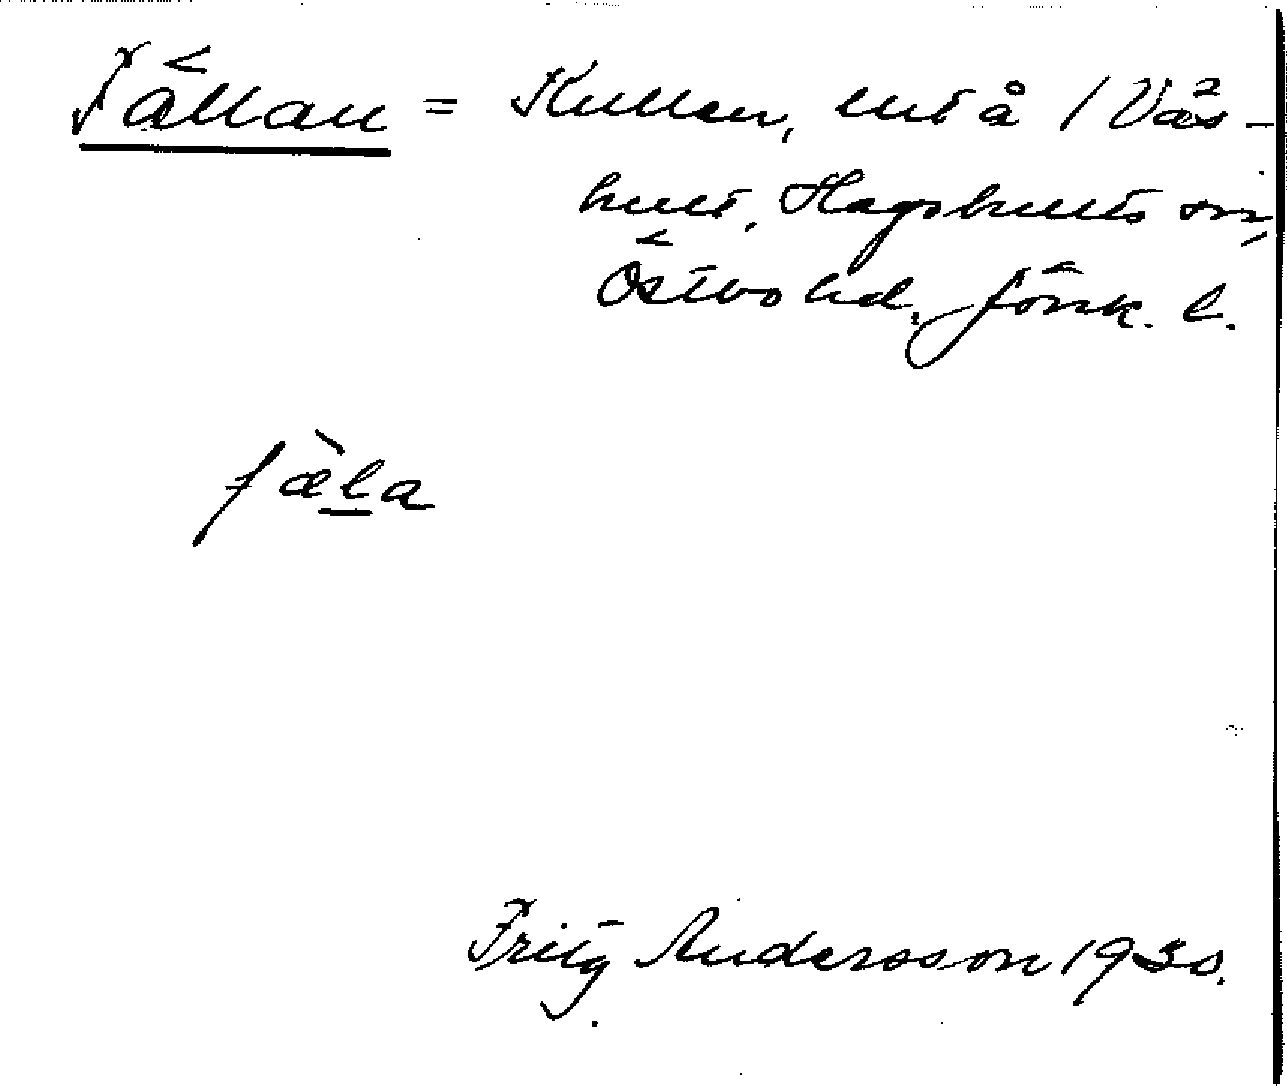 Fällan = Kullen, lht å 1 Vås-
hult, Hagshults sn,
Östbo hd, Jönk. l.
fæla
Fritz Andersson 1930.